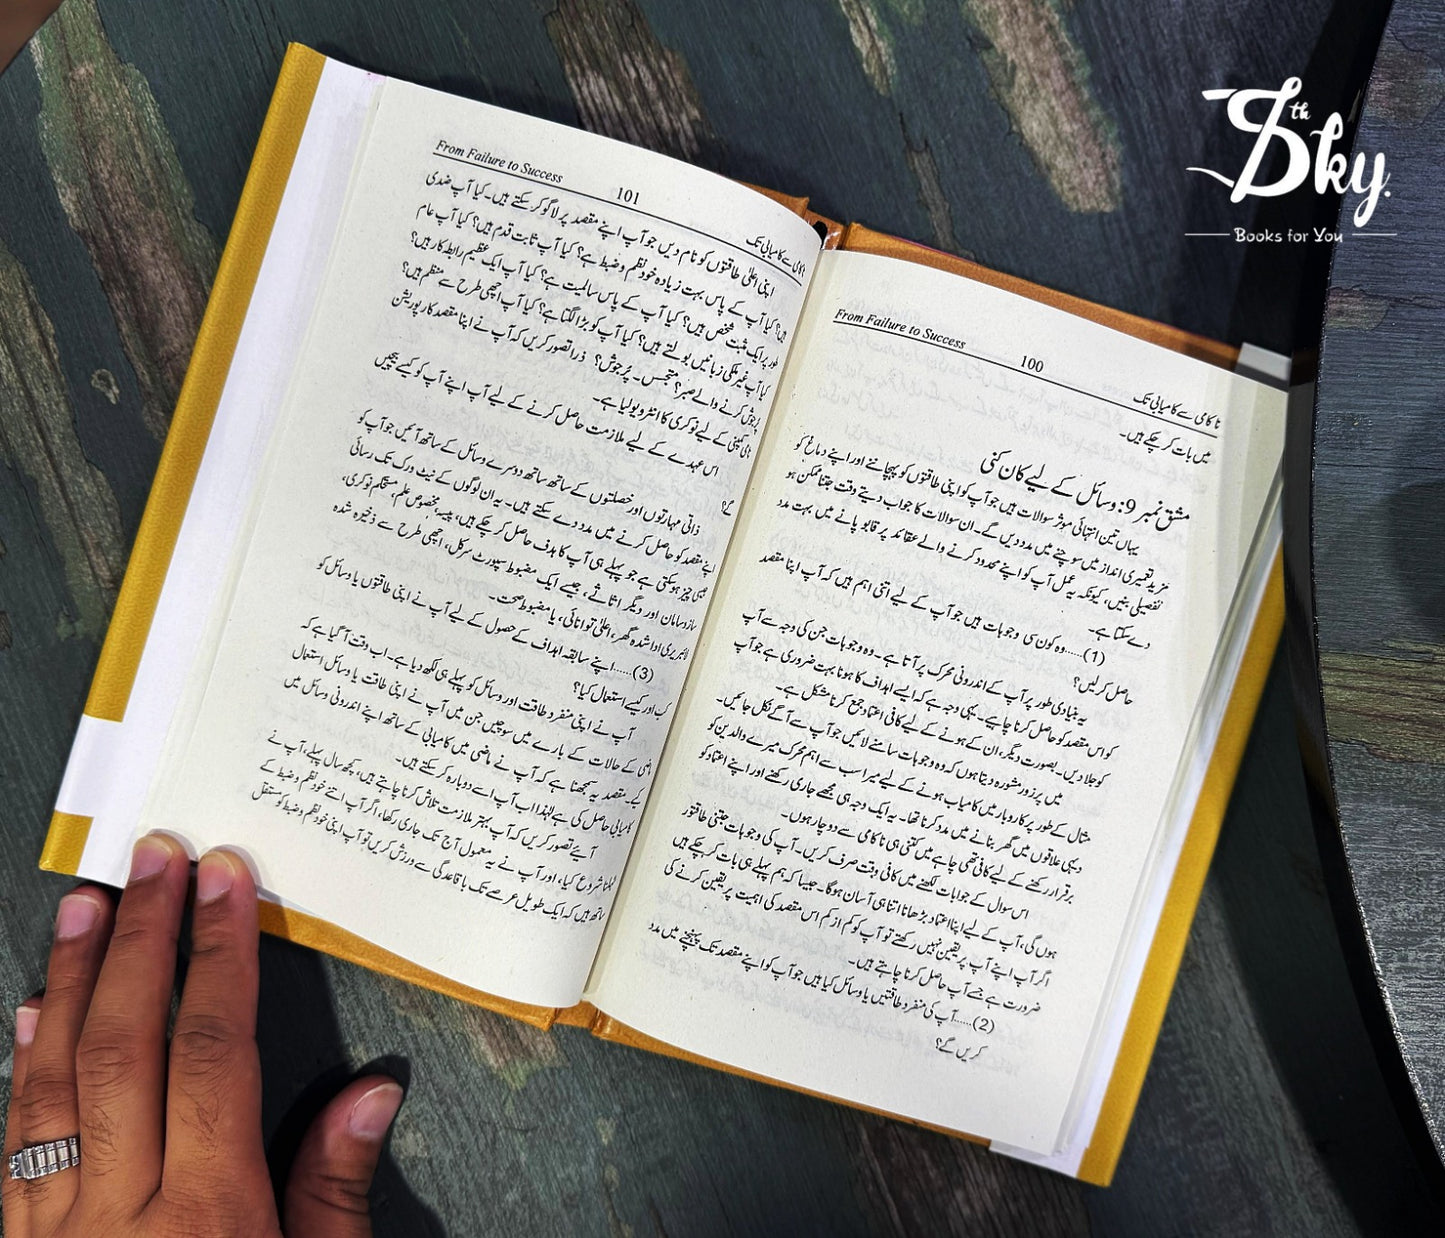 the Sky.
Books for You
From Failure to Success 100 ناکامی سے کامیابی تک
میں بات کر چکے ہیں۔
مشق نمبر 9: وسائل کے لیے کان کنی
یہاں تین انتہائی موثر سوالات ہیں جو آپ کو اپنی طاقتوں کو پہچاننے اور اپنے دماغ کو
مزید تعمیری انداز میں سوچنے میں مدد دیں گے۔ ان سوالات کا جواب دیتے وقت جتنا ممکن ہو
تفصیلی بنیں، کیونکہ یہ عمل آپ کو اپنے محدود کرنے والے عقائد پر قابو پانے میں بہت مدد
دے سکتا ہے۔
(1).....وہ کون سی وجوہات ہیں جو آپ کے لیے اتنی اہم ہیں کہ آپ اپنا مقصد
حاصل کر لیں؟
یہ بنیادی طور پر آپ کے اندرونی محرک پر آتا ہے۔ وہ وجوہات جن کی وجہ سے آپ
کو اس مقصد کو حاصل کرنا چاہیے۔ یہی وجہ ہے کہ ایسے اہداف کا ہونا بہت ضروری ہے جو آپ
کو جلا دیں۔ بصورت دیگر، ان کے ہونے کے لیے کافی اعتماد جمع کرنا مشکل ہے۔
میں پر زور مشورہ دیتا ہوں کہ وہ وجوہات سامنے لائیں جو آپ سے آگے نکل جائیں۔
مثال کے طور پر کاروبار میں کامیاب ہونے کے لیے میرا سب سے اہم محرک میرے والدین کو
دیہی علاقوں میں گھر بنانے میں مدد کرنا تھا۔ یہ ایک وجہ ہی مجھے جاری رکھنے اور اپنے اعتماد کو
برقرار رکھنے کے لیے کافی تھی چاہے میں کتنی ہی ناکامی سے دوچار ہوں۔
اس سوال کے جوابات لکھنے میں کافی وقت صرف کریں۔ آپ کی وجوہات جتنی طاقتور
ہوں گی، آپ کے لیے اپنا اعتماد بڑھانا اتنا ہی آسان ہوگا۔ جیسا کہ ہم پہلے ہی بات کر چکے ہیں
اگر آپ اپنے آپ پر یقین نہیں رکھتے تو آپ کو کم از کم اس مقصد کی اہمیت پر یقین کرنے کی
ضرورت ہے جسے آپ حاصل کرنا چاہتے ہیں۔
(2).....آپ کی منفرد طاقتیں یا وسائل کیا ہیں جو آپ کو اپنے مقصد تک پہنچنے میں مدد
کریں گے؟
From Failure to Success 101 ناکامی سے کامیابی تک
اپنی اعلیٰ طاقتوں کو نام دیں جو آپ اپنے مقصد پر لاگو کر سکتے ہیں۔ کیا آپ ضدی
ہیں؟ کیا آپ کے پاس بہت زیادہ خود نظم و ضبط ہے؟ کیا آپ ثابت قدم ہیں؟ کیا آپ عام
طور پر ایک مثبت شخص ہیں؟ کیا آپ کے پاس سالمیت ہے؟ کیا آپ ایک عظیم رابطہ کار ہیں؟
کیا آپ غیر ملکی زبانیں بولتے ہیں؟ کیا آپ کو بڑا لگتا ہے؟ کیا آپ اچھی طرح سے منظم ہیں؟
پرجوش کرنے والے صبر؟ متجسس۔ پُرجوش؟ ذرا تصور کریں کہ آپ نے اپنا مقصد کارپوریشن
کمپنی کے لیے نوکری کا انٹرویو لیا ہے۔
اس عہدے کے لیے ملازمت حاصل کرنے کے لیے آپ اپنے آپ کو کیسے بیچیں
گے؟
ذاتی مہارتوں اور خصلتوں کے ساتھ ساتھ دوسرے وسائل کے ساتھ آئیں جو آپ کو
اپنے مقصد کو حاصل کرنے میں مدد دے سکتے ہیں۔ یہ ان لوگوں کے نیٹ ورک تک رسائی
جیسی چیز ہو سکتی ہے جو پہلے ہی آپ کا ہدف حاصل کر چکے ہیں، پیسہ، مخصوص علم، مستحکم نوکری،
ساز و سامان اور دیگر اثاثے، جیسے ایک مضبوط سپورٹ سرکل، اچھی طرح سے ذخیرہ شدہ
لائبریری ادا شدہ گھر، اعلیٰ توانائی، یا مضبوط صحت۔
(3).....اپنے سابقہ اہداف کے حصول کے لیے آپ نے اپنی طاقتوں یا وسائل کو
کب اور کیسے استعمال کیا؟
آپ نے اپنی منفرد طاقت اور وسائل کو پہلے ہی لکھ دیا ہے۔ اب وقت آ گیا ہے کہ
ماضی کے حالات کے بارے میں سوچیں جن میں آپ نے اپنی طاقت یا وسائل استعمال
کیے۔ مقصد یہ سمجھنا ہے کہ آپ نے ماضی میں کامیابی کے ساتھ اپنے اندرونی وسائل میں
کامیابی حاصل کی ہے لہٰذا اب آپ اسے دوبارہ کر سکتے ہیں۔
آئیے تصور کریں کہ آپ بہتر ملازمت تلاش کرنا چاہتے ہیں، کچھ سال پہلے، آپ نے
لکھنا شروع کیا، اور آپ نے یہ معمول آج تک جاری رکھا، اگر آپ اتنے خود نظم و ضبط کے
ساتھ ہیں کہ ایک طویل عرصے تک باقاعدگی سے ورزش کریں تو آپ اپنی خود نظم و ضبط کو مستقل